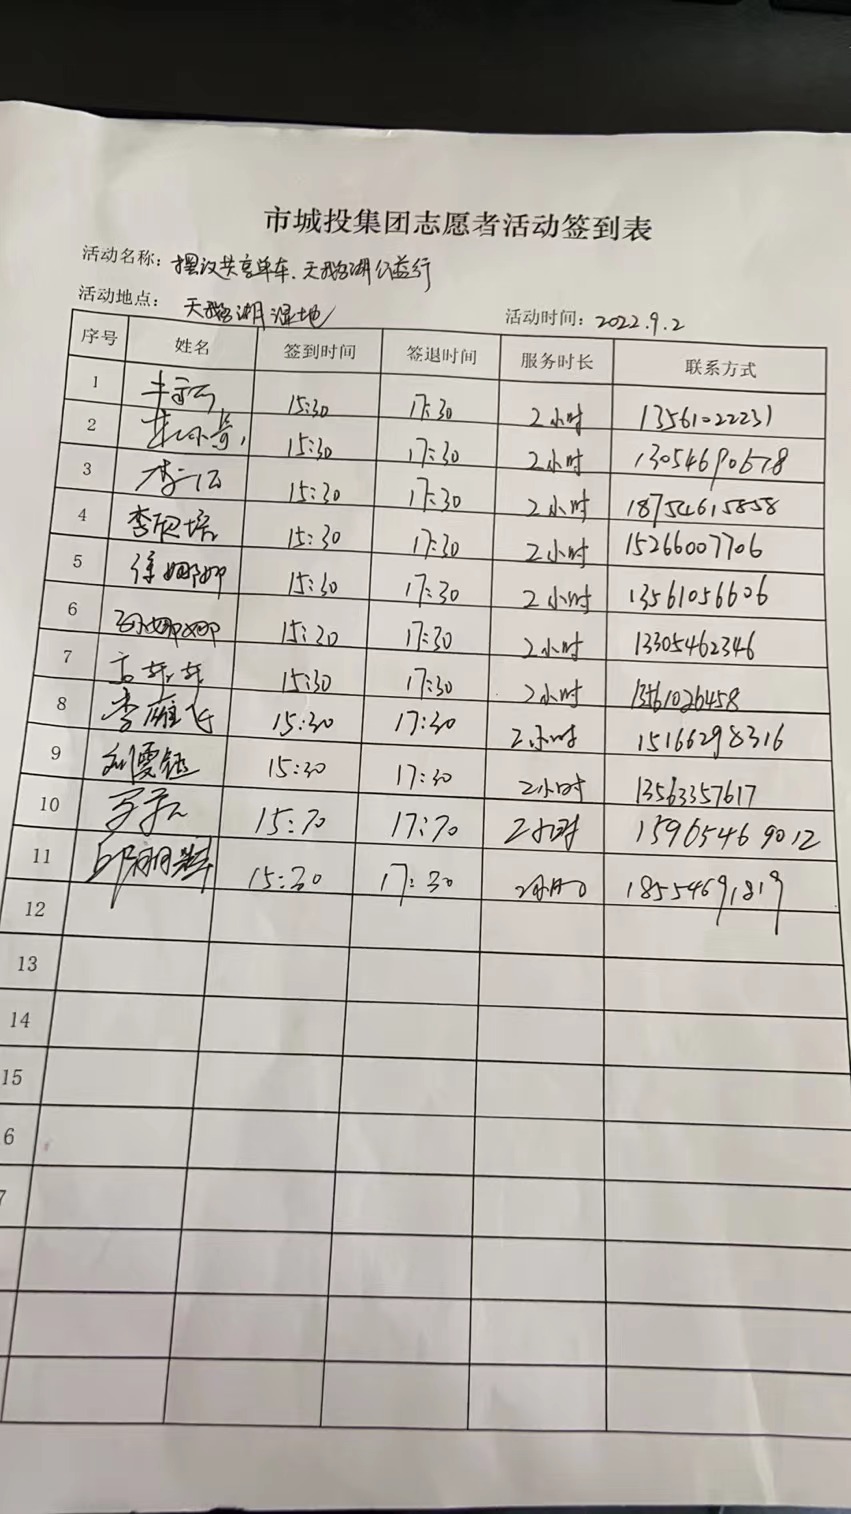 市城投集团志愿者活动签到表
活动名称：摆放共享单车、天鹅湖公益行
活动地点：天鹅湖湿地 活动时间：2022.9.2
序号 姓名 签到时间 签退时间 服务时长 联系方式
1 15:30 17:30 2小时 13561022231
2 15:30 17:30 2小时 13054690678
3 李云 15:30 17:30 2小时 18754615858
4 李欣培 15:30 17:30 2小时 15266007706
5 徐娜娜 15:30 17:30 2小时 13561056606
6 孙娜娜 15:30 17:30 2小时 13305462346
7 15:30 17:30 2小时 13561026458
8 李雁飞 15:30 17:30 2小时 15166298316
9 刘雯钰 15:30 17:30 2小时 13563357617
10 15:30 17:30 2小时 15965469012
11 15:30 17:30 2小时 18554691819
12
13
14
15
6
7